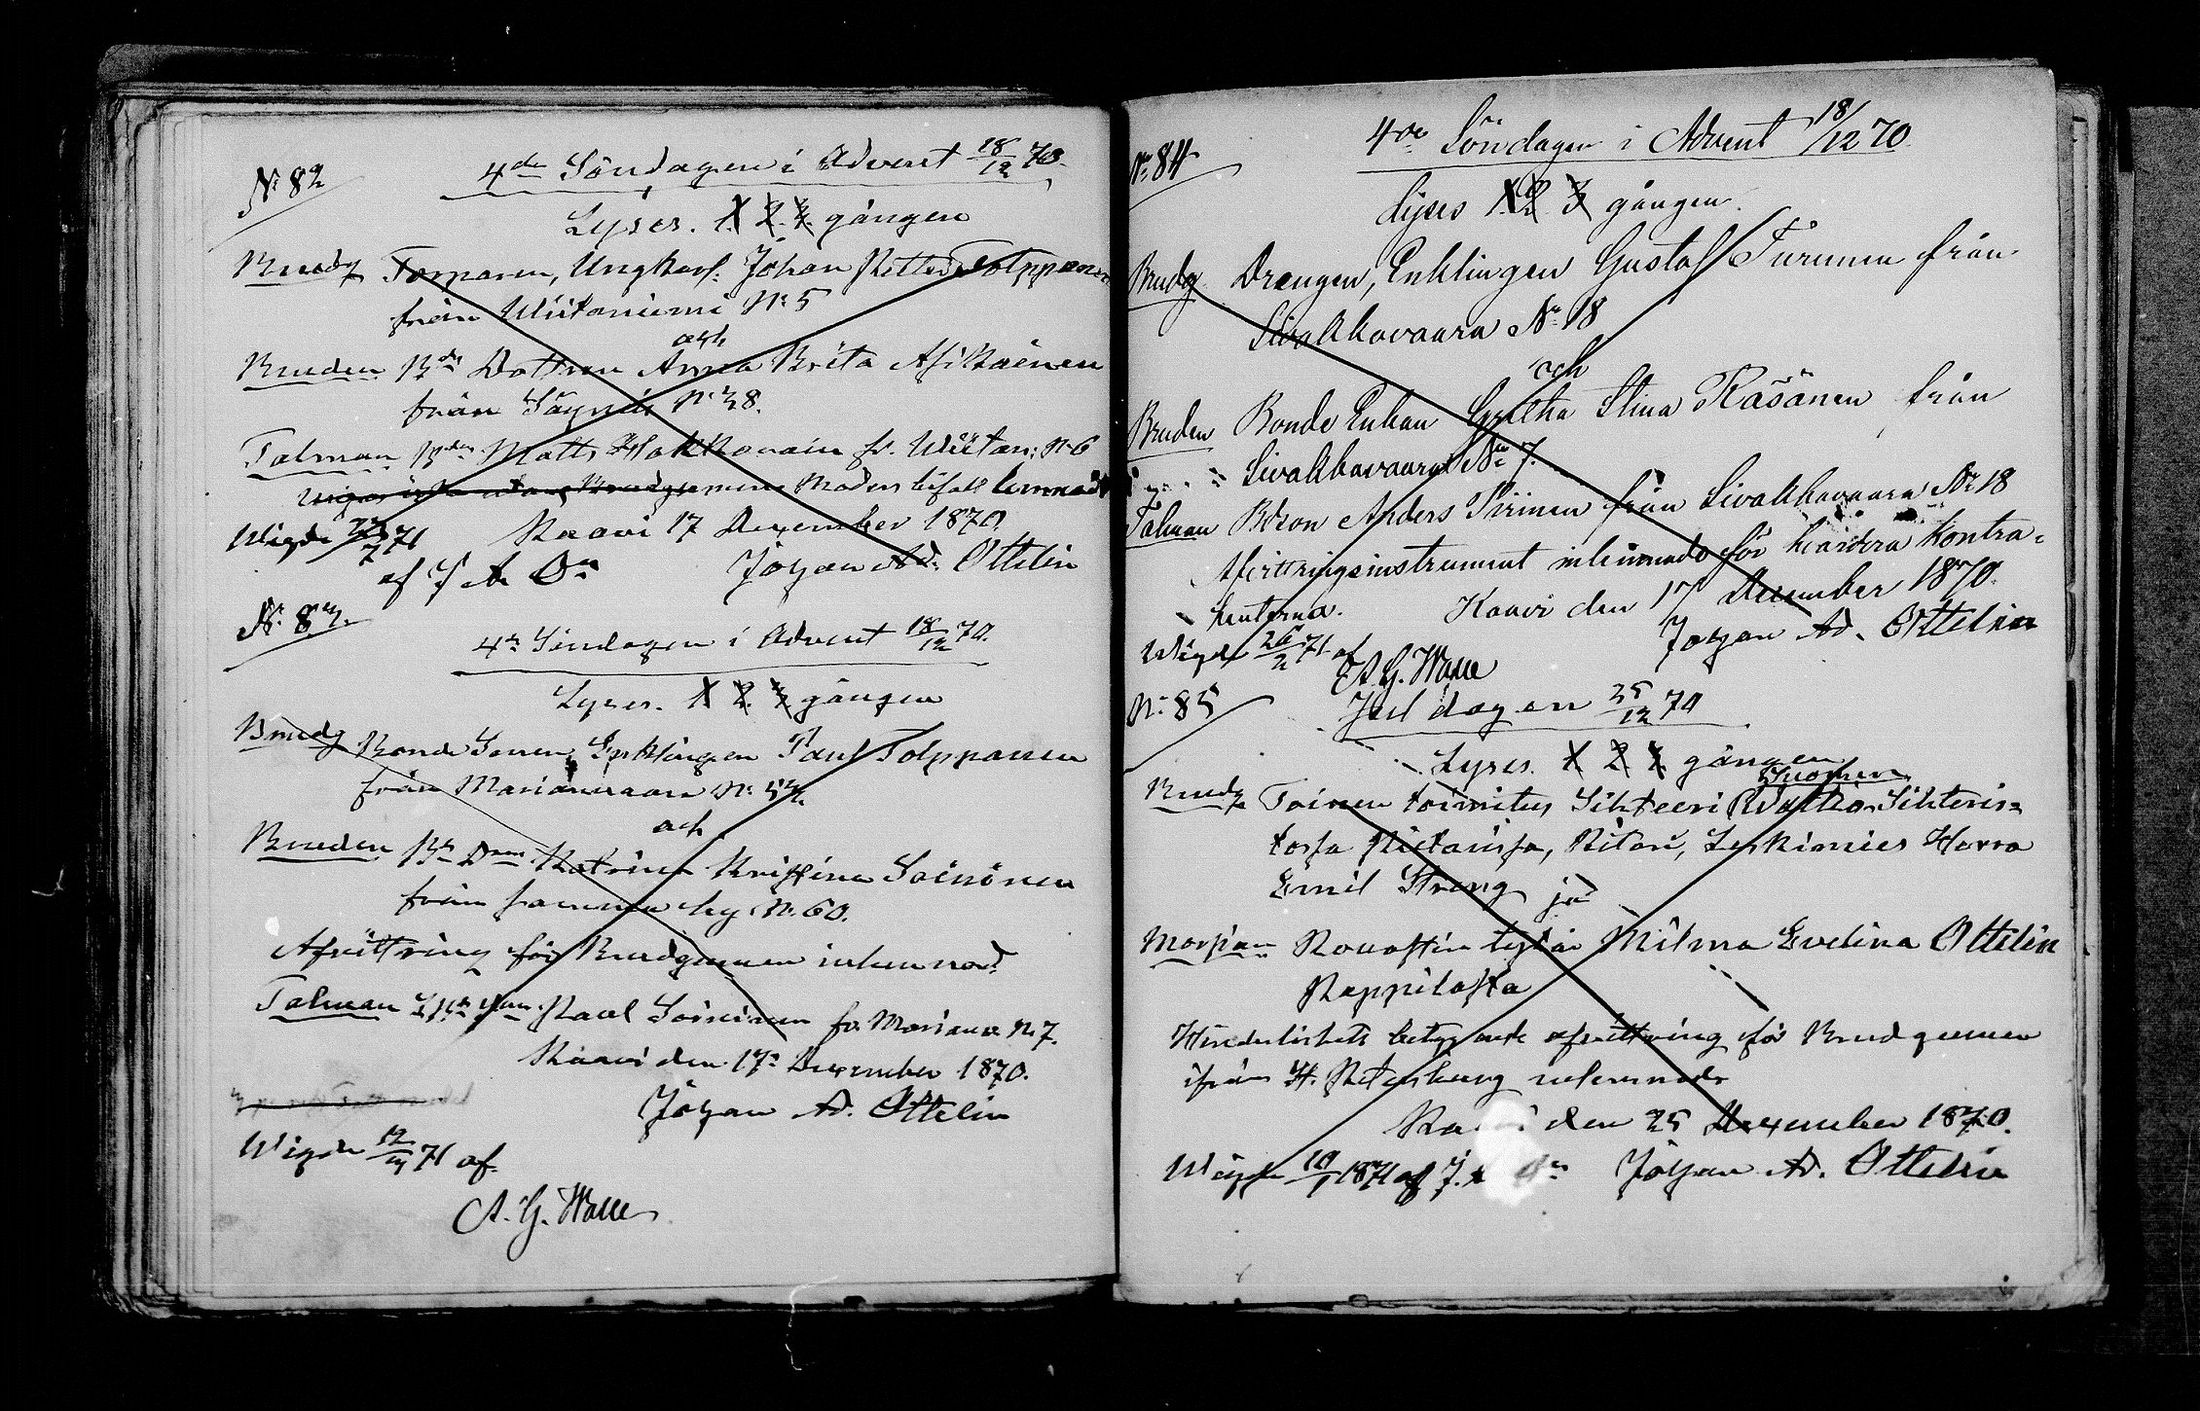 N: 82
4de Söndagen i Advent 18/12 70.
Lyses. 1. 2. 3. gången
Brudg Torparen, Ungkarl. Johan Petter Tolppanen
från Wiitaniemi N: 5
och
Bruden Bde Dottren Anna Brita Asikainen
från Säyneis N: 38.
Talman Bden Matts Hakkarain fr. Wiitan: N: 6
Brudgummens Moders bifall lemnadt
Wigde 7 71 Kaavi 17 December 1870.
af J A On Johan Ad. Ottelin
N: 83.
4de Söndagen i Advent 18/12 70.
Lyses. 1 2 3 gången
Brudg Bonde Sonen, Enklingen Paul Tolppanen
från Marianvaara N:
och
Bruden Bde Dren Katrina Kristina Soininen
från samma by N: 60.
Afvittring för Brudgummen inlemnad.
Talman Paul Soininen fr. Marianv. N: 7.
Kaavi den 17de December 1870.
Johan Ad. Ottelin
Wigde 12 71 af
A. G. Walle
N: 84
4de Söndagen i Advent 18/12 70
Lyses 1. 2. 3 gången.
Brudg. Drengen, Enklingen Gustaf Turunen från
Sivakkavaara No 18
och
Bruden Bonde Enkan Gretha Stina Räsänen från
Sivakkavaara No 7.
Talman Bdeson Anders Piirinen från Sivakkavaara No 18
Afvittringsinstrument inlemnade för bärdera Kontra-
henterna. Kaavi den 17 December 1870.
Johan Ad. Ottelin
Wigde 26/2 71 af
A. G. Walle
N: 85
Juldagen 25/12 70
Lyses. 1 2 3 gången
Brudg Toinen toimitus Sihteeri Suomen Waltio Sihteris-
tossa Pietarissa, Ritari, Leskimies Herra
Emil Streng ja
Morsian Rouastin tytär Hilma Evelina Ottelin
Pappilasta
Hinderlöshets betyg och afvittring för Brudgummen
ifrån St. Petersburg inlemnade
den 25 December 1870.
Wigde 10/1 1871 af J. Johan Ad. Ottelin